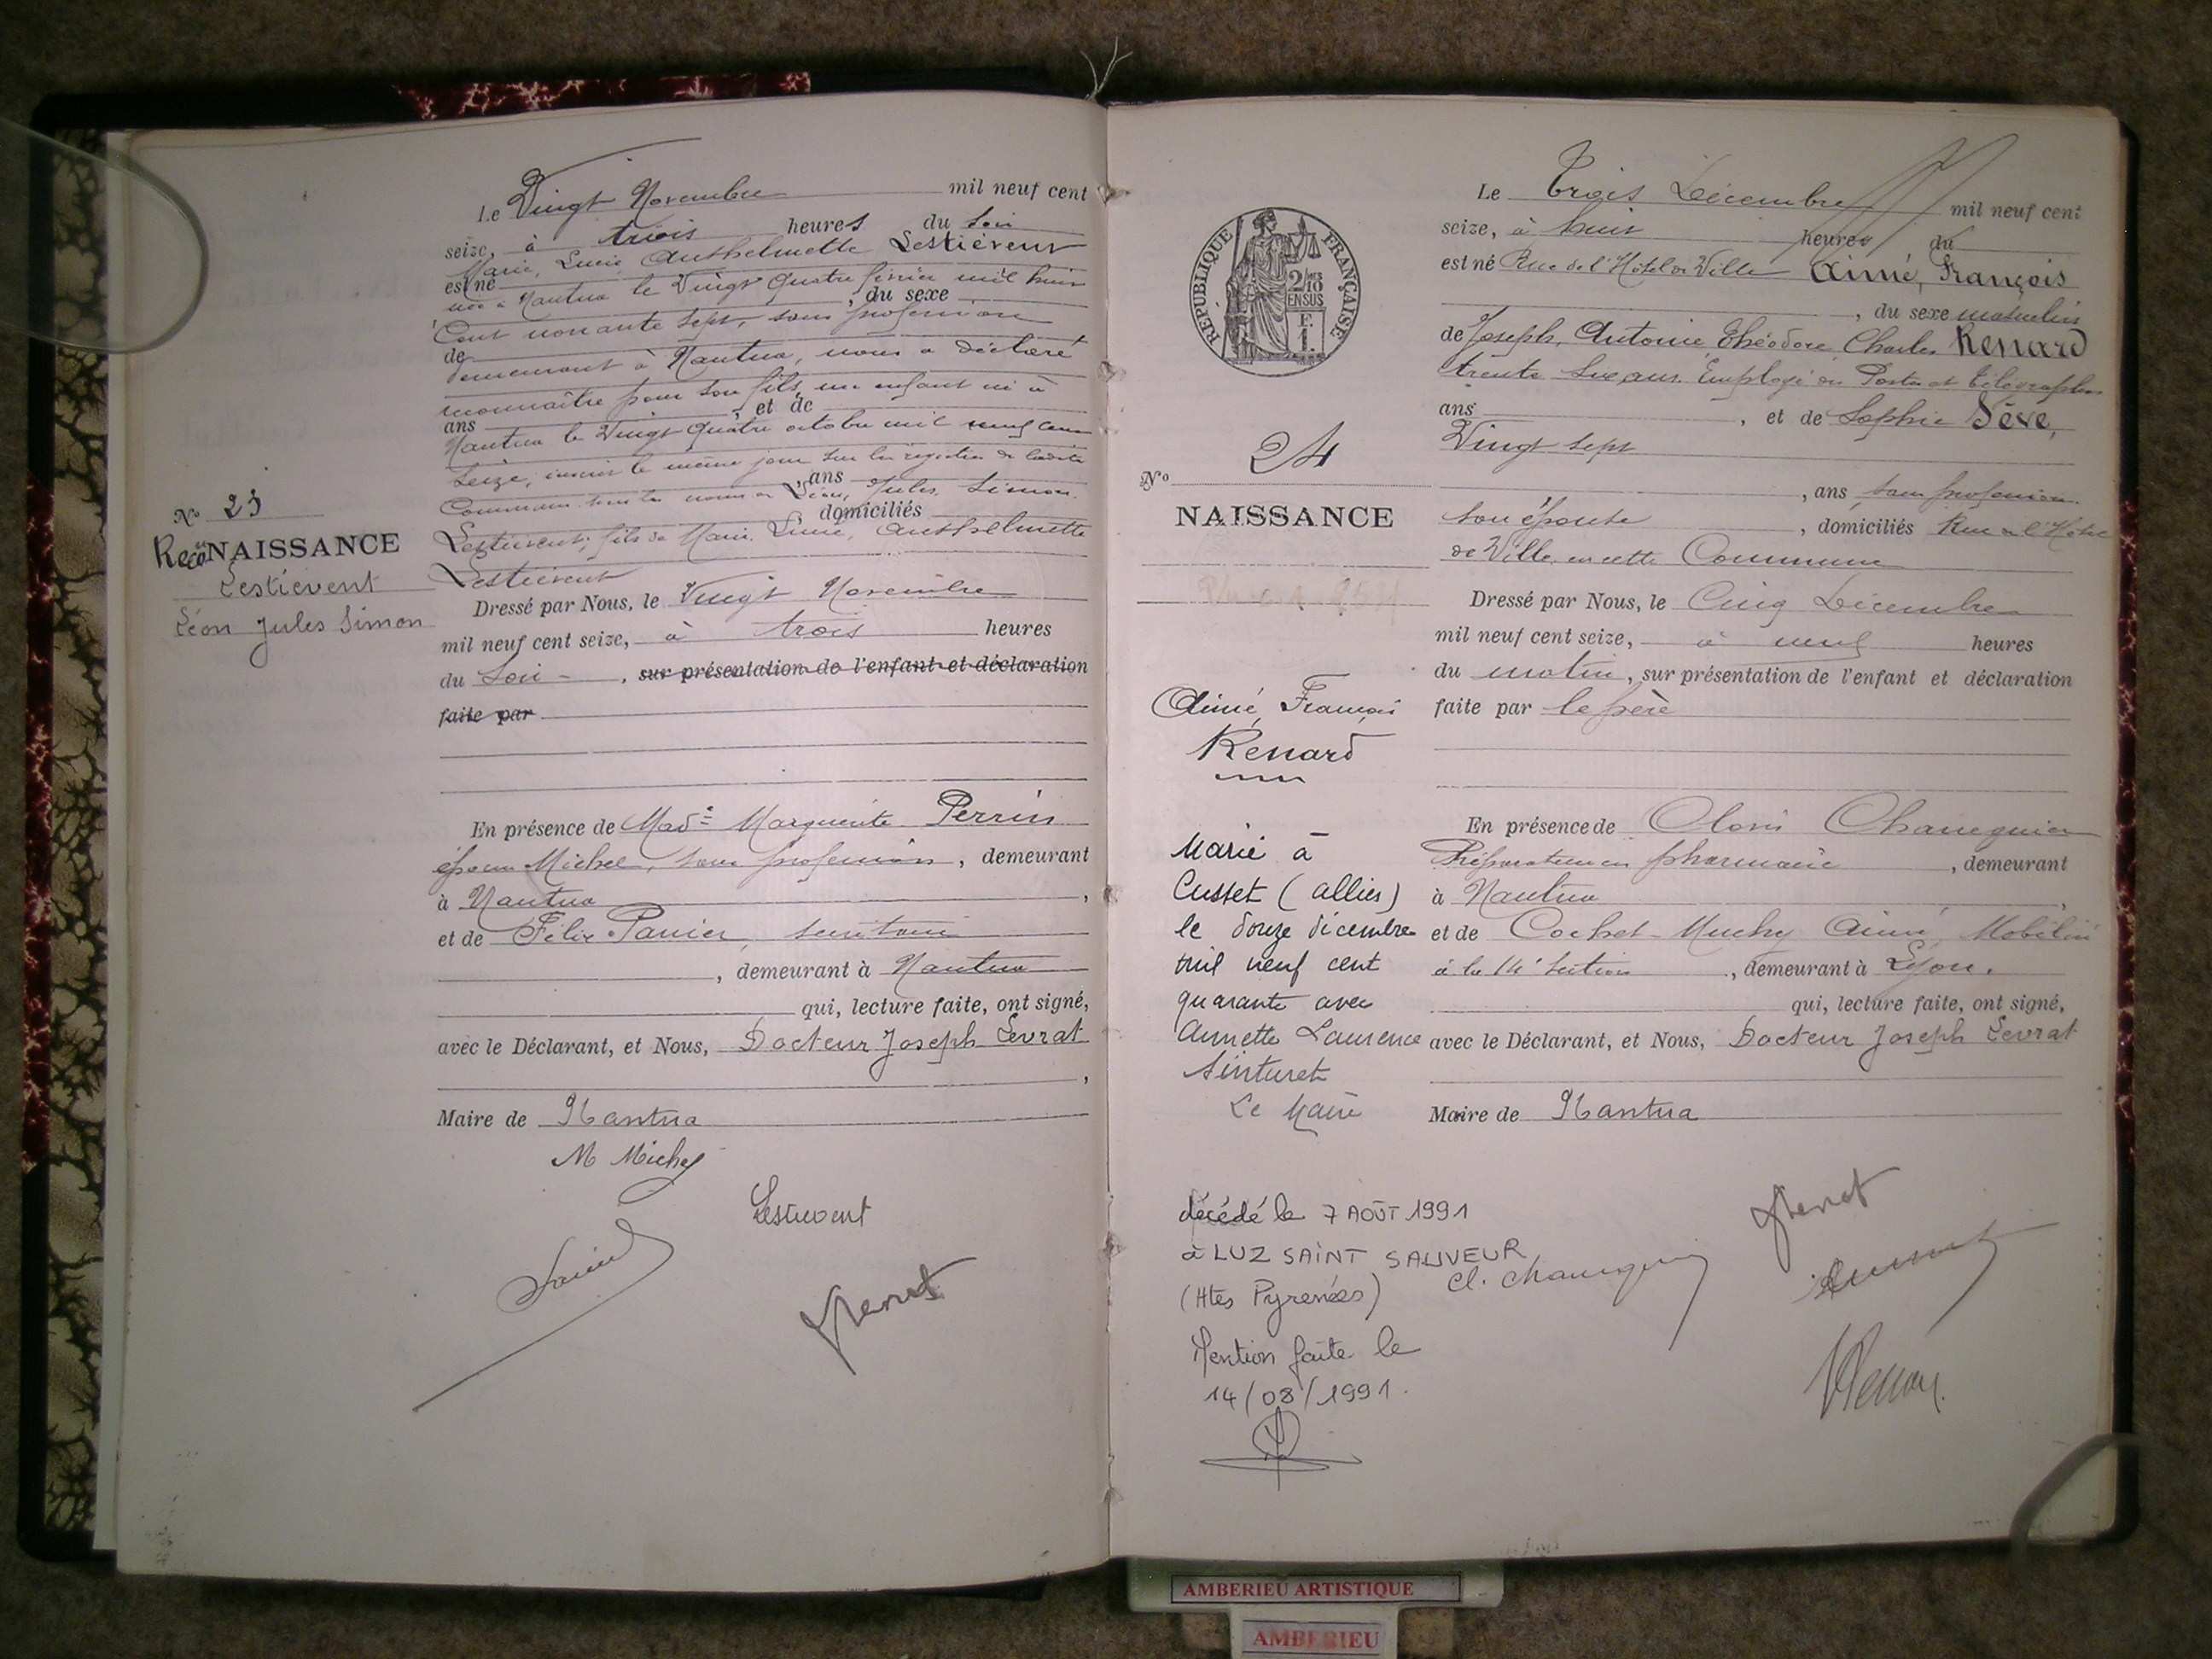 Le Vingt Novembre mil neuf cent
seize, à trois heures du soir
Marie, Lucie Anthelmette Lestiévent
est né
née à Nantua le Vingt quatre février mil huit
, du sexe
Cent nonante sept, sans profession
de
demeurant à Nantua, nous a déclaré
reconnaître pour son fils, un enfant né à
ans , et de
Nantua le Vingt quatre octobre mil neuf cent
seize, inscrit le même jour sur les registres de ladite
, ans
Commune sous les noms de Léon, Jules, Simon
domiciliés
Lestiévent, fils de Marie, Lucie, Anthelmette
Lestiévent
N° 23
RecoNAISSANCE
Lestiévent
Léon Jules Simon
Dressé par Nous, le Vingt Novembre
mil neuf cent seize, à trois heures
du Soir , sur présentation de l'enfant et déclaration
faite par
En présence de Mad^e Marguerite Perrin
épouse Michel, sans profession, demeurant
à Nantua ,
et de Félix Panier, secrétaire
, demeurant à Nantua
qui, lecture faite, ont signé,
avec le Déclarant, et Nous, Docteur Joseph Levrat
,
Maire de Nantua
M Michel
Lestievent
RÉPUBLIQUE FRANÇAISE
2/10 EN SUS
F. 1.
N° 24
NAISSANCE
Aimé François
Renard
Marié à
Cusset (allier)
le douze décembre
mil neuf cent
quarante avec
Annette Laurence
Sinturet
Le Maire
décédé le 7 AOÛT 1991
à LUZ SAINT SAUVEUR
(Htes Pyrenées)
Mention faite le
14/08/1991.
Le Trois Décembre mil neuf cent
seize, à huit heures du
est né Rue de l'Hôtel de Ville Aimé, François
, du sexe masculin
de Joseph, Antoine Théodore, Charles Renard
trente six ans Employé des Postes et Télégraphes
ans , et de Sophie Sève,
Vingt sept
, ans sans profession.
son épouse , domiciliés Rue de l'Hôtel
de Ville, en cette Commune
Dressé par Nous, le Cinq Décembre
mil neuf cent seize, à neuf heures
du matin, sur présentation de l'enfant et déclaration
faite par le père
En présence de Clovis
Préparateur en pharmacie , demeurant
à Nantua ,
et de Cochet-Muchy Aimé, Mobilisé
à la 14e Section , demeurant à Lyon.
qui, lecture faite, ont signé,
avec le Déclarant, et Nous, Docteur Joseph Levrat
Maire de Nantua
AMBERIEU ARTISTIQUE
AMBERIEU